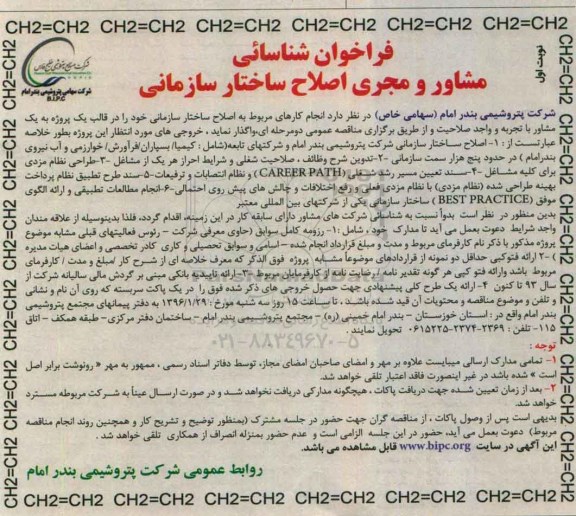 CH2=CH2 CH2=CH2 CH2=CH2 CH2=CH2 CH2=CH2 CH2=CH2 CH2=CH2
نوبت اول
فراخوان شناسائی
مشاور و مجری اصلاح ساختار سازمانی
شرکت صنایع پتروشیمی خلیج فارس
شرکت سهامی پتروشیمی بندر امام
B.I.P.C
شرکت پتروشیمی بندر امام (سهامی خاص) در نظر دارد انجام کارهای مربوط به اصلاح ساختار سازمانی خود را در قالب یک پروژه به یک
مشاور با تجربه و واجد صلاحیت و از طریق برگزاری مناقصه عمومی دومرحله ای،واگذار نماید ، خروجی های مورد انتظار این پروژه بطور خلاصه
عبارتست از : ۱- اصلاح ساختار سازمانی شرکت پتروشیمی بندر امام و شرکتهای تابعه(شامل : کیمیا/ بسپاران/فرآورش/خوارزمی و آب نیروی
بندرامام ) در حدود پنج هزار سمت سازمانی ۲-تدوین شرح وظائف ، صلاحیت شغلی و شرایط احراز هر یک از مشاغل ۳-طراحی نظام مزدی
برای کلیه مشاغل ۴-سند تعیین مسیر رشد شغلی (CAREER PATH) و نظام انتصابات و ترفیعات ۵-سند طرح تطبیق نظام پرداخت
بهینه طراحی شده (نظام مزدی) با نظام مزدی فعلی و رفع اختلافات و چالش های پیش روی احتمالی-۶-انجام مطالعات تطبیقی و ارائه الگوی
موفق (BEST PRACTICE ) ساختار سازمانی یکی از شرکتهای بین المللی معتبر
بدین منظور در نظر است بدوأ نسبت به شناسائی شرکت های مشاور دارای سابقه کار در این زمینه، اقدام گردد، فلذا بدینوسیله از علاقه مندان
واجد شرایط دعوت بعمل می آید تا مدارک خود ، شامل :۱- رزومه کامل سوابق (حاوی معرفی شرکت – رئوس فعالیتهای قبلی مشابه موضوع
پروژه مذکور با ذکر نام کارفرمای مربوط و مدت و مبلغ قرارداد انجام شده – اسامی و سوابق تحصیلی و کاری کادر تخصصی و اعضای هیات مدیره
) -۲ ارائه فتوکپی حداقل دو نمونه از قراردادهای موضوعأ مشابه پروژه فوق الذکر که معرف خلاصه ای از شرح کار /مبلغ و مدت / کارفرمای
مربوط باشد وارائه فتوکپی هر گونه تقدیر نامه / رضایت نامه از کارفرمایان مربوط ۳- ارائه تاییدیه بانکی مبنی بر گردش مالی سالیانه شرکت از
سال ۹۳ تا کنون ۴-ارائه یک طرح کلی پیشنهادی جهت حصول خروجی های ذکر شده فوق را در یک پاکت سربسته که روی آن نام و نشانی
و تلفن و موضوع مناقصه و محتویات آن قید شده باشند ، تا ساعت ۱۵ روز سه شنبه مورخ : ۱۳۹۶/۱/۲۹ به دفتر پیمانهای مجتمع پتروشیمی
بندر امام واقع در : استان خوزستان – بندر امام خمینی (ره) – مجتمع پتروشیمی بندر امام – ساختمان دفتر مرکزی– طبقه همکف – اتاق
۱۱۵– تلفن : ۲۳۶۹-۲۳۷۴-۰۶۱۵۲۲۵ تحویل نمایند .
۰۲۱-۸۸۳۴۹۶۷۰-۵
توجه :
۱- تمامی مدارک ارسالی میبایست علاوه بر مهر و امضای صاحبان امضای مجاز، توسط دفاتر اسناد رسمی ، ممهور به مهر « رونوشت برابر اصل
است » شده باشد در غیر اینصورت فاقد اعتبار تلقی خواهد شد.
۲- بعد از زمان تعیین شده جهت دریافت پاکات ، هیچگونه مدارکی دریافت نخواهد شد و در صورت ارسال عیناً به شرکت مربوطه مسترد
خواهد شد.
بدیهی است پس از وصول پاکات ، از مناقصه گران جهت حضور در جلسه مشترک (بمنظور توضیح و تشریح کار و همچنین روند انجام مناقصه
مربوط) دعوت بعمل می آید، حضور در این جلسه الزامی است و عدم حضور بمنزله انصراف از همکاری تلقی خواهد شد .
این آگهی در سایت www.bipc.org قابل مشاهده می باشد.
روابط عمومی شرکت پتروشیمی بندر امام
CH2=CH2 CH2=CH2 CH2=CH2 CH2=CH2 CH2=CH2 CH2=CH2 CH2=CH2